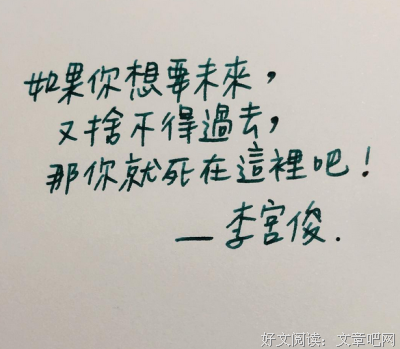 如果你想要未來，
又捨不得過去，
那你就死在這裡吧！
—李宮俊.
好文阅读：文章吧网